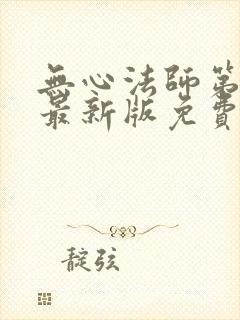 無心法師第
最新版免費
靛弦